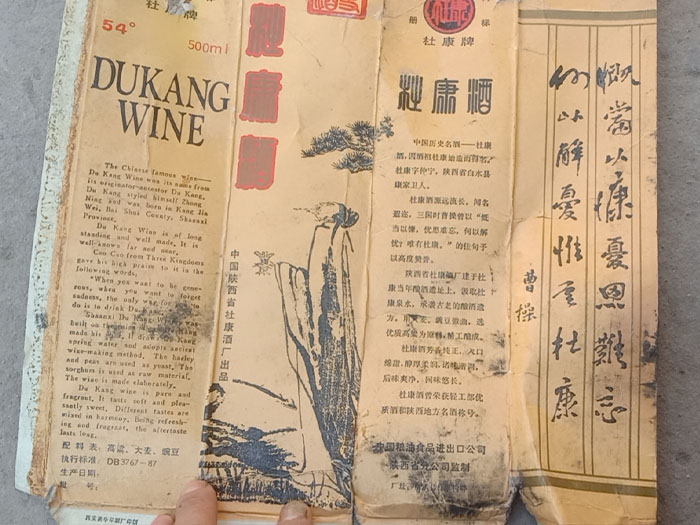 杜康牌
54°
500ml
DUKANG
WINE
The Chinese famous wine—
Du Kang Wine was its name from
its originator-ancestor Du Kang.
Du Kang styled himself Zhong
Ning and was born in Kang Jia
Wei, Bai Shui County, Shaanxi
Province.
Du Kang Wine is of long
standing and well made, It is
well-known far and near.
Cao Cao from Three Kingdoms
gave his high praise to it in the
following words.
"When you want to be gene-
rous, when you want to forget
sadness, the only way
do is to drink Du Kang
Shaanxi Du Kang Wine
built on the
made his
spring water and adopts ancient
wine-making method. The barley
and peas are used as yeast. The
sorghum is used as raw material.
The wine is made elaborately.
Du Kang wine is pure and
fragrant, It tastes soft and plea-
santly sweet, Different tastes are
mixed in harmony, Being refresh-
ing and fragrant, the aftertaste
lasts long.
配料表：高粱、大麦、豌豆
执行标准：DB3767-87
生产日期：
批 号：
杜康酒
中国陕西省杜康酒厂出品
册 标
杜康牌
杜康酒
中国历史名酒——杜康
酒，因酒祖杜康始造而得名，
杜康字仲宁，陕西省白水县
康家卫人。
杜康酒源远流长，闻名
遐迩，三国时曹操曾以“慨
当以慷，忧思难忘，何以解
忧？唯有杜康。”的佳句予
以高度赞誉。
陕西省杜康酒厂建于杜
康当年酿酒遗址上，汲取杜
康泉水，承袭古老的酿酒遗
方，用大麦、豌豆踩曲，选
优质高粱为原料，精工酿成。
杜康酒芳香纯正，入口
绵甜，醇厚柔和，诸味谐调，
后味爽净，回味悠长。
杜康酒曾荣获轻工部优
质酒和陕西地方名酒称号。
中国粮油食品进出口公司
陕西省分公司监制
慨当以慷憂思難忘
何以解憂惟有杜康
曹操